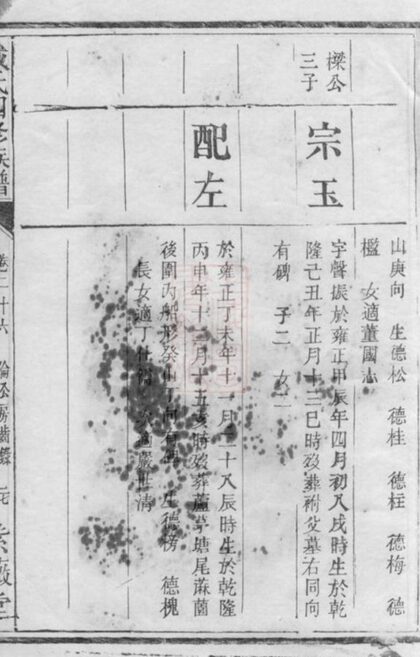 山庚向 生德松 德桂 德柱 德梅 德
檻 女適董國志
樑公
三子
宗玉
字聲振於雍正甲辰年四月初八戌時生於乾
隆己丑年正月十三巳時歿葬祔父墓右同向
有碑 子二 女二
配左
於雍正丁未年十一月二十八辰時生於乾隆
丙申年十二月十五亥時歿葬蘆茅塘尾蔴薗
後圍內船形癸山丁向有碑 生德榜 德槐
長女適丁 次適嚴世清
氏四修族譜
卷二十六